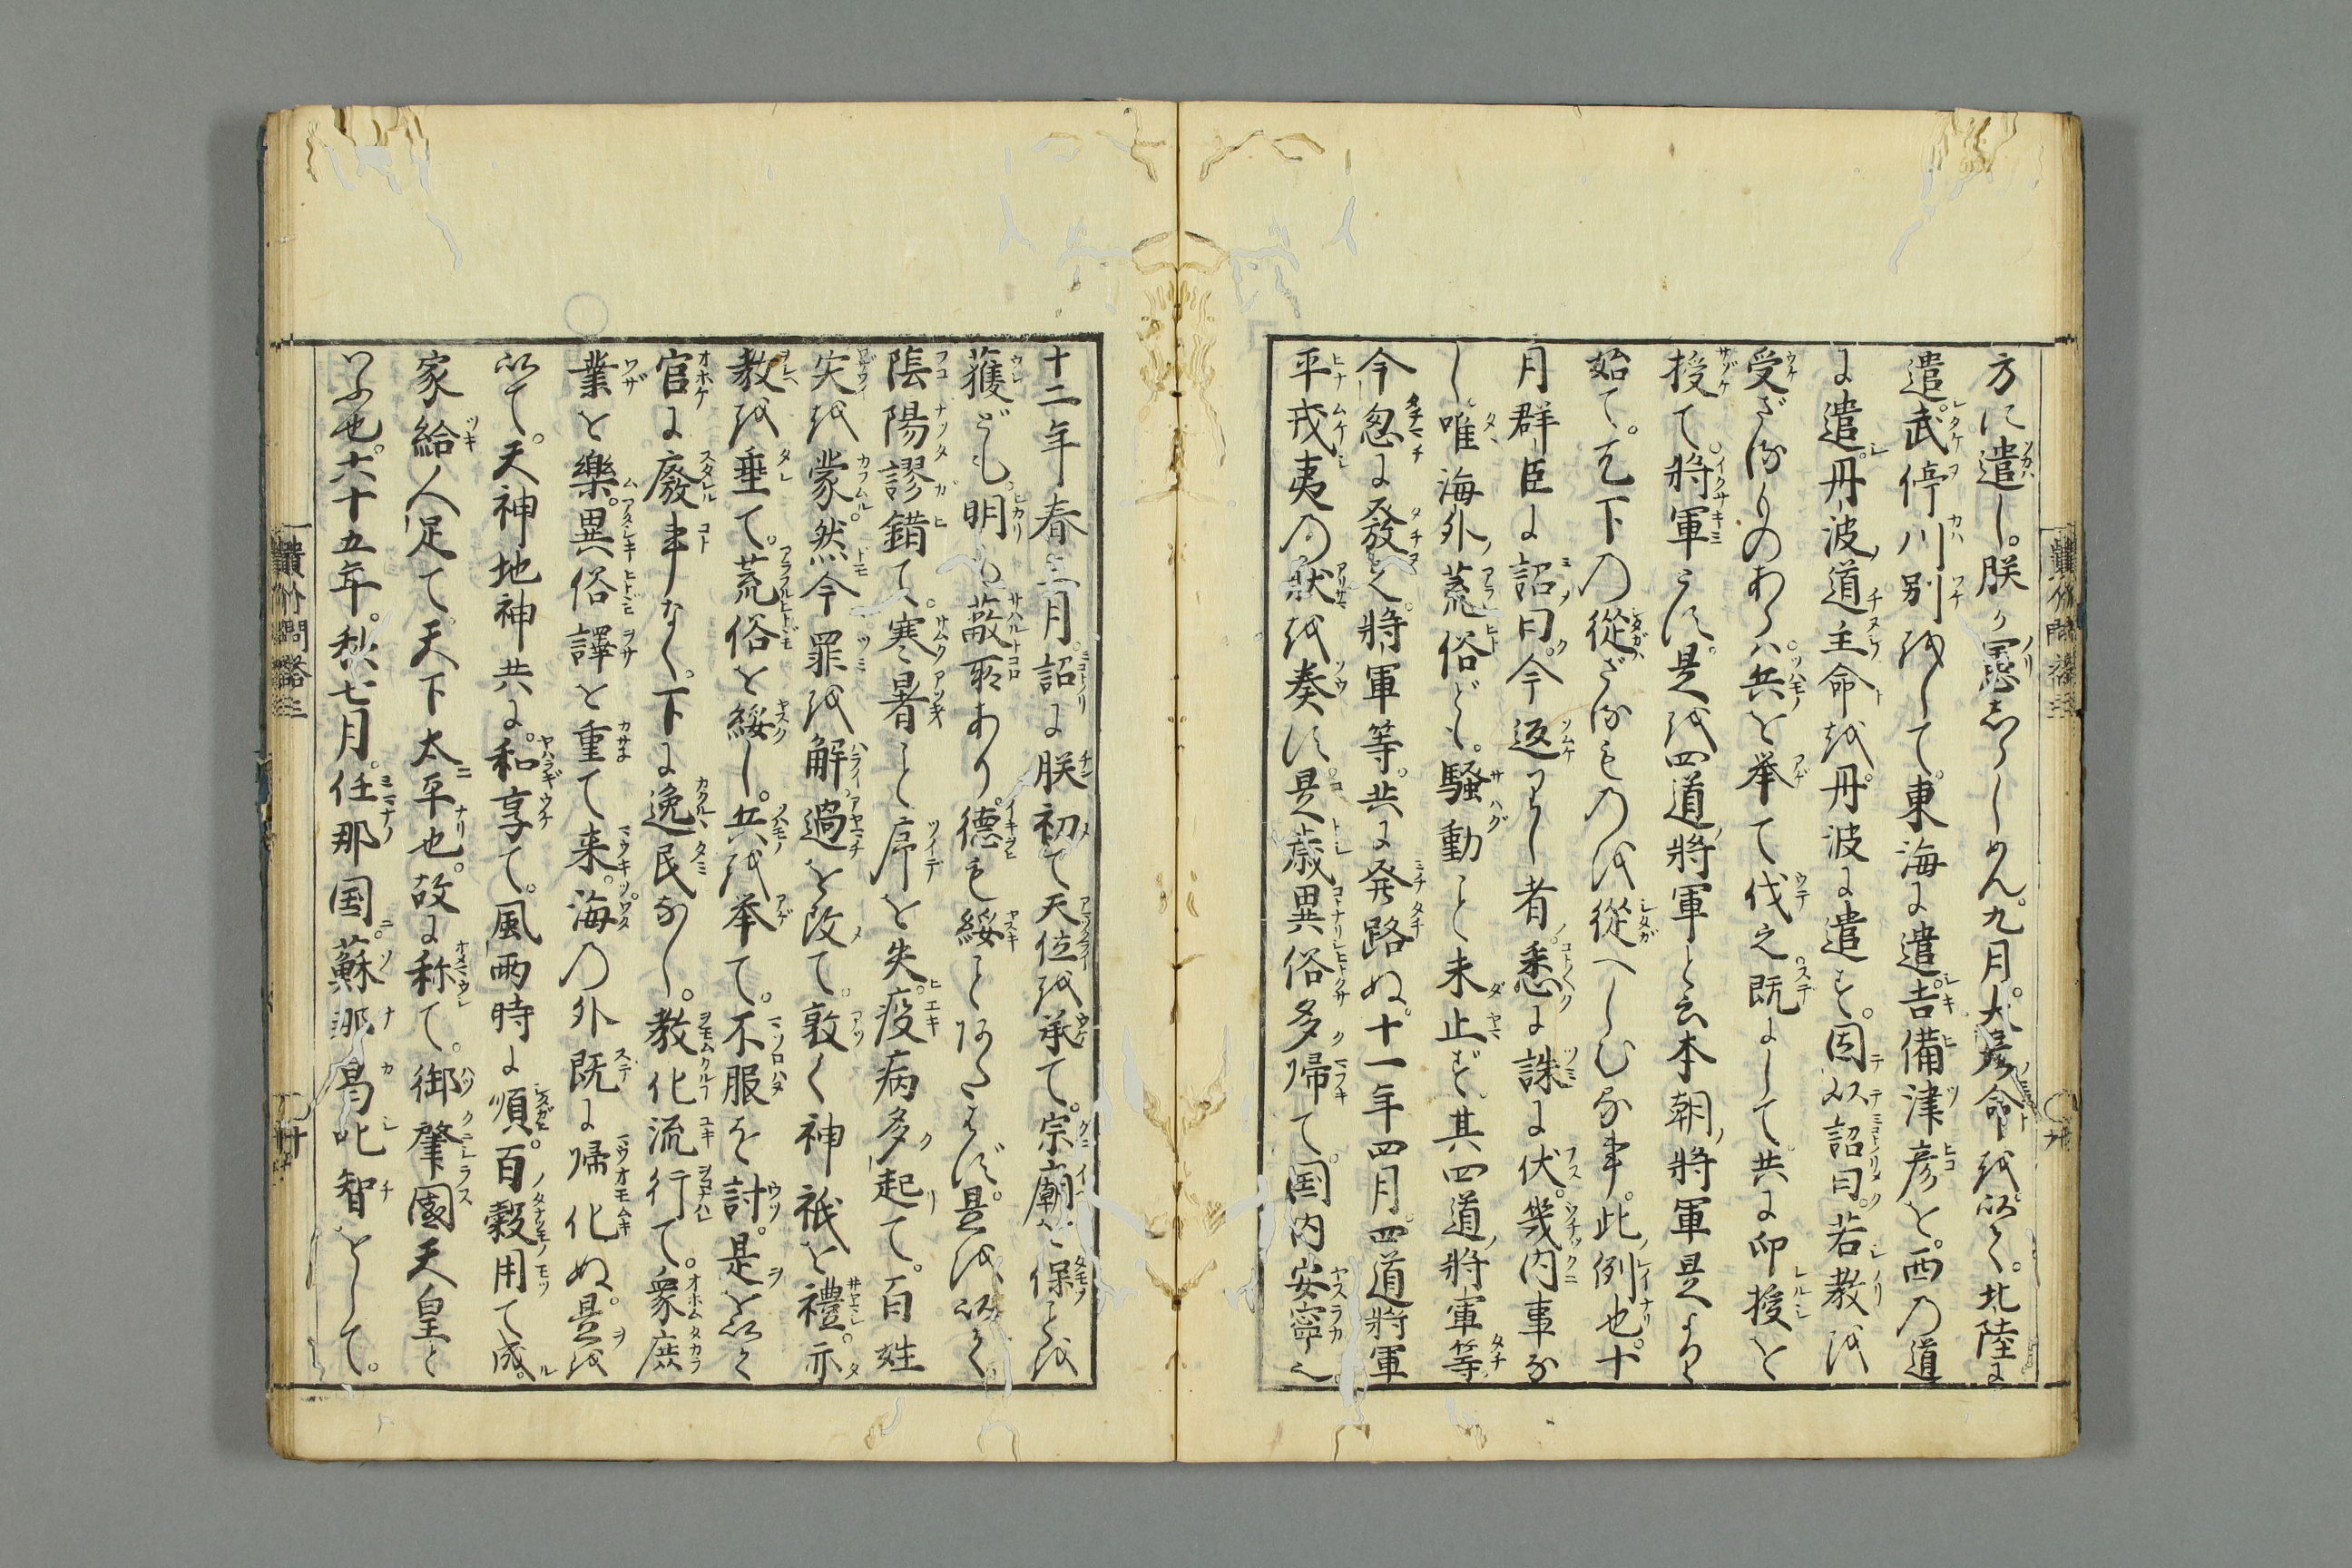 方に遣し。朕か憲をしらしめん。九月。大彦命を以て。北陸に
遣。武渟川別をして。東海に遣。吉備津彦を。西の道
に遣。丹波道主命を。丹波に遣す。因以詔曰。若教を
受ざるものあらハ。兵を挙て伐之。既にして。共に印授を
授て。将軍とす。是を四道将軍と云。本朝将軍是より
始て。天下の従ざるものを従へしむる事。此例也。十
月群臣に詔曰。今返りし者。悉に誅に伏。幾内事な
し。唯海外荒俗ども。騒動こと未止ず。其四道将軍等。
今忽に発之。将軍等。共に発路ぬ。十一年四月。四道将軍
平戎夷の状を奏す。是歳異俗多帰て。国内安寧之。
十二年春三月。詔に朕初て天位を承て。宗廟を保ことを
獲ども。明も蔽所あり。徳も綏ことあたはず。是を以て
陰陽謬錯て。寒暑こと序を失。疫病多起て。百姓
災を蒙。然今罪を解。過を改て。敦く神祇を禮。亦
教を垂て。荒俗を綏し。兵を挙て。不服を討。是を以て
官に廢事なく。下に逸民なし。教化流行て。衆庶
業を樂。異俗譯を重て来。海の外既に帰化ぬ。是を
以て。天神地神共に。和享て。風雨時に順。百穀用て成。
家給人足て。天下太平也。故に称て。御肇國天皇と
いふ也。六十五年。秋七月。任那国。蘇那曷叱智をして。